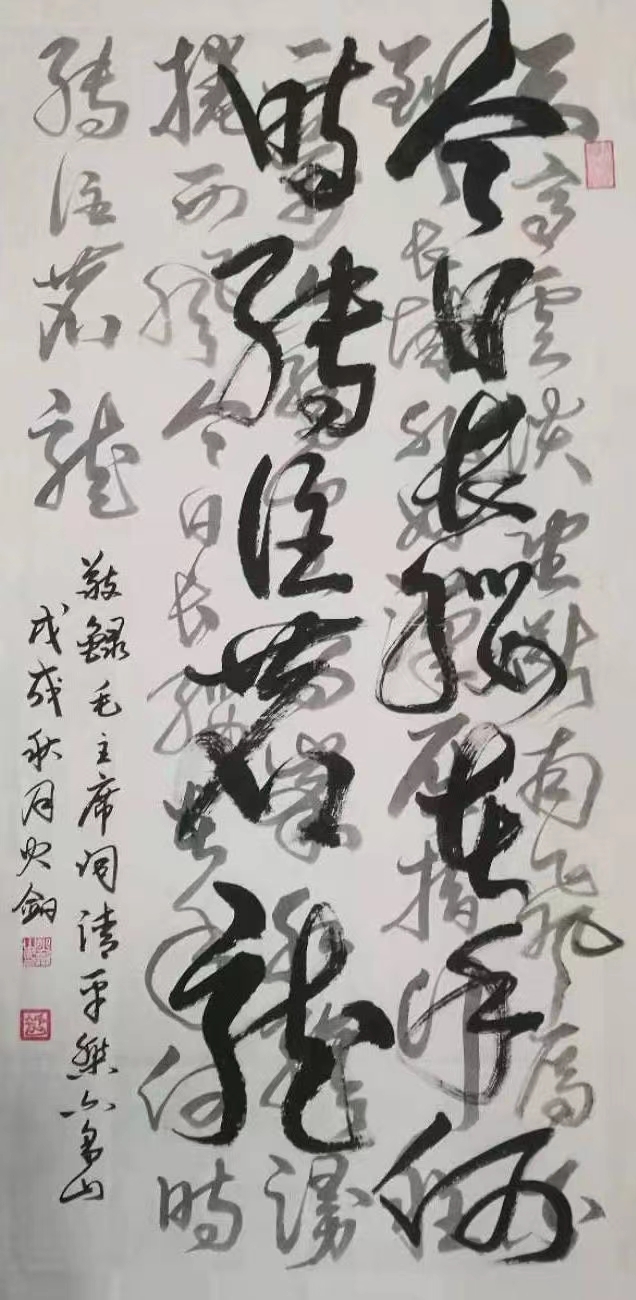 今日長纓在手何
時縛住蒼龍
天高雲淡望斷南飞雁不
到長城非好漢屈指行程
二万六盤山上高峯紅旗漫
捲西風今日長纓在手何時
縛住蒼龍
敬録毛主席词清平樂六盘山
戊戌秋月